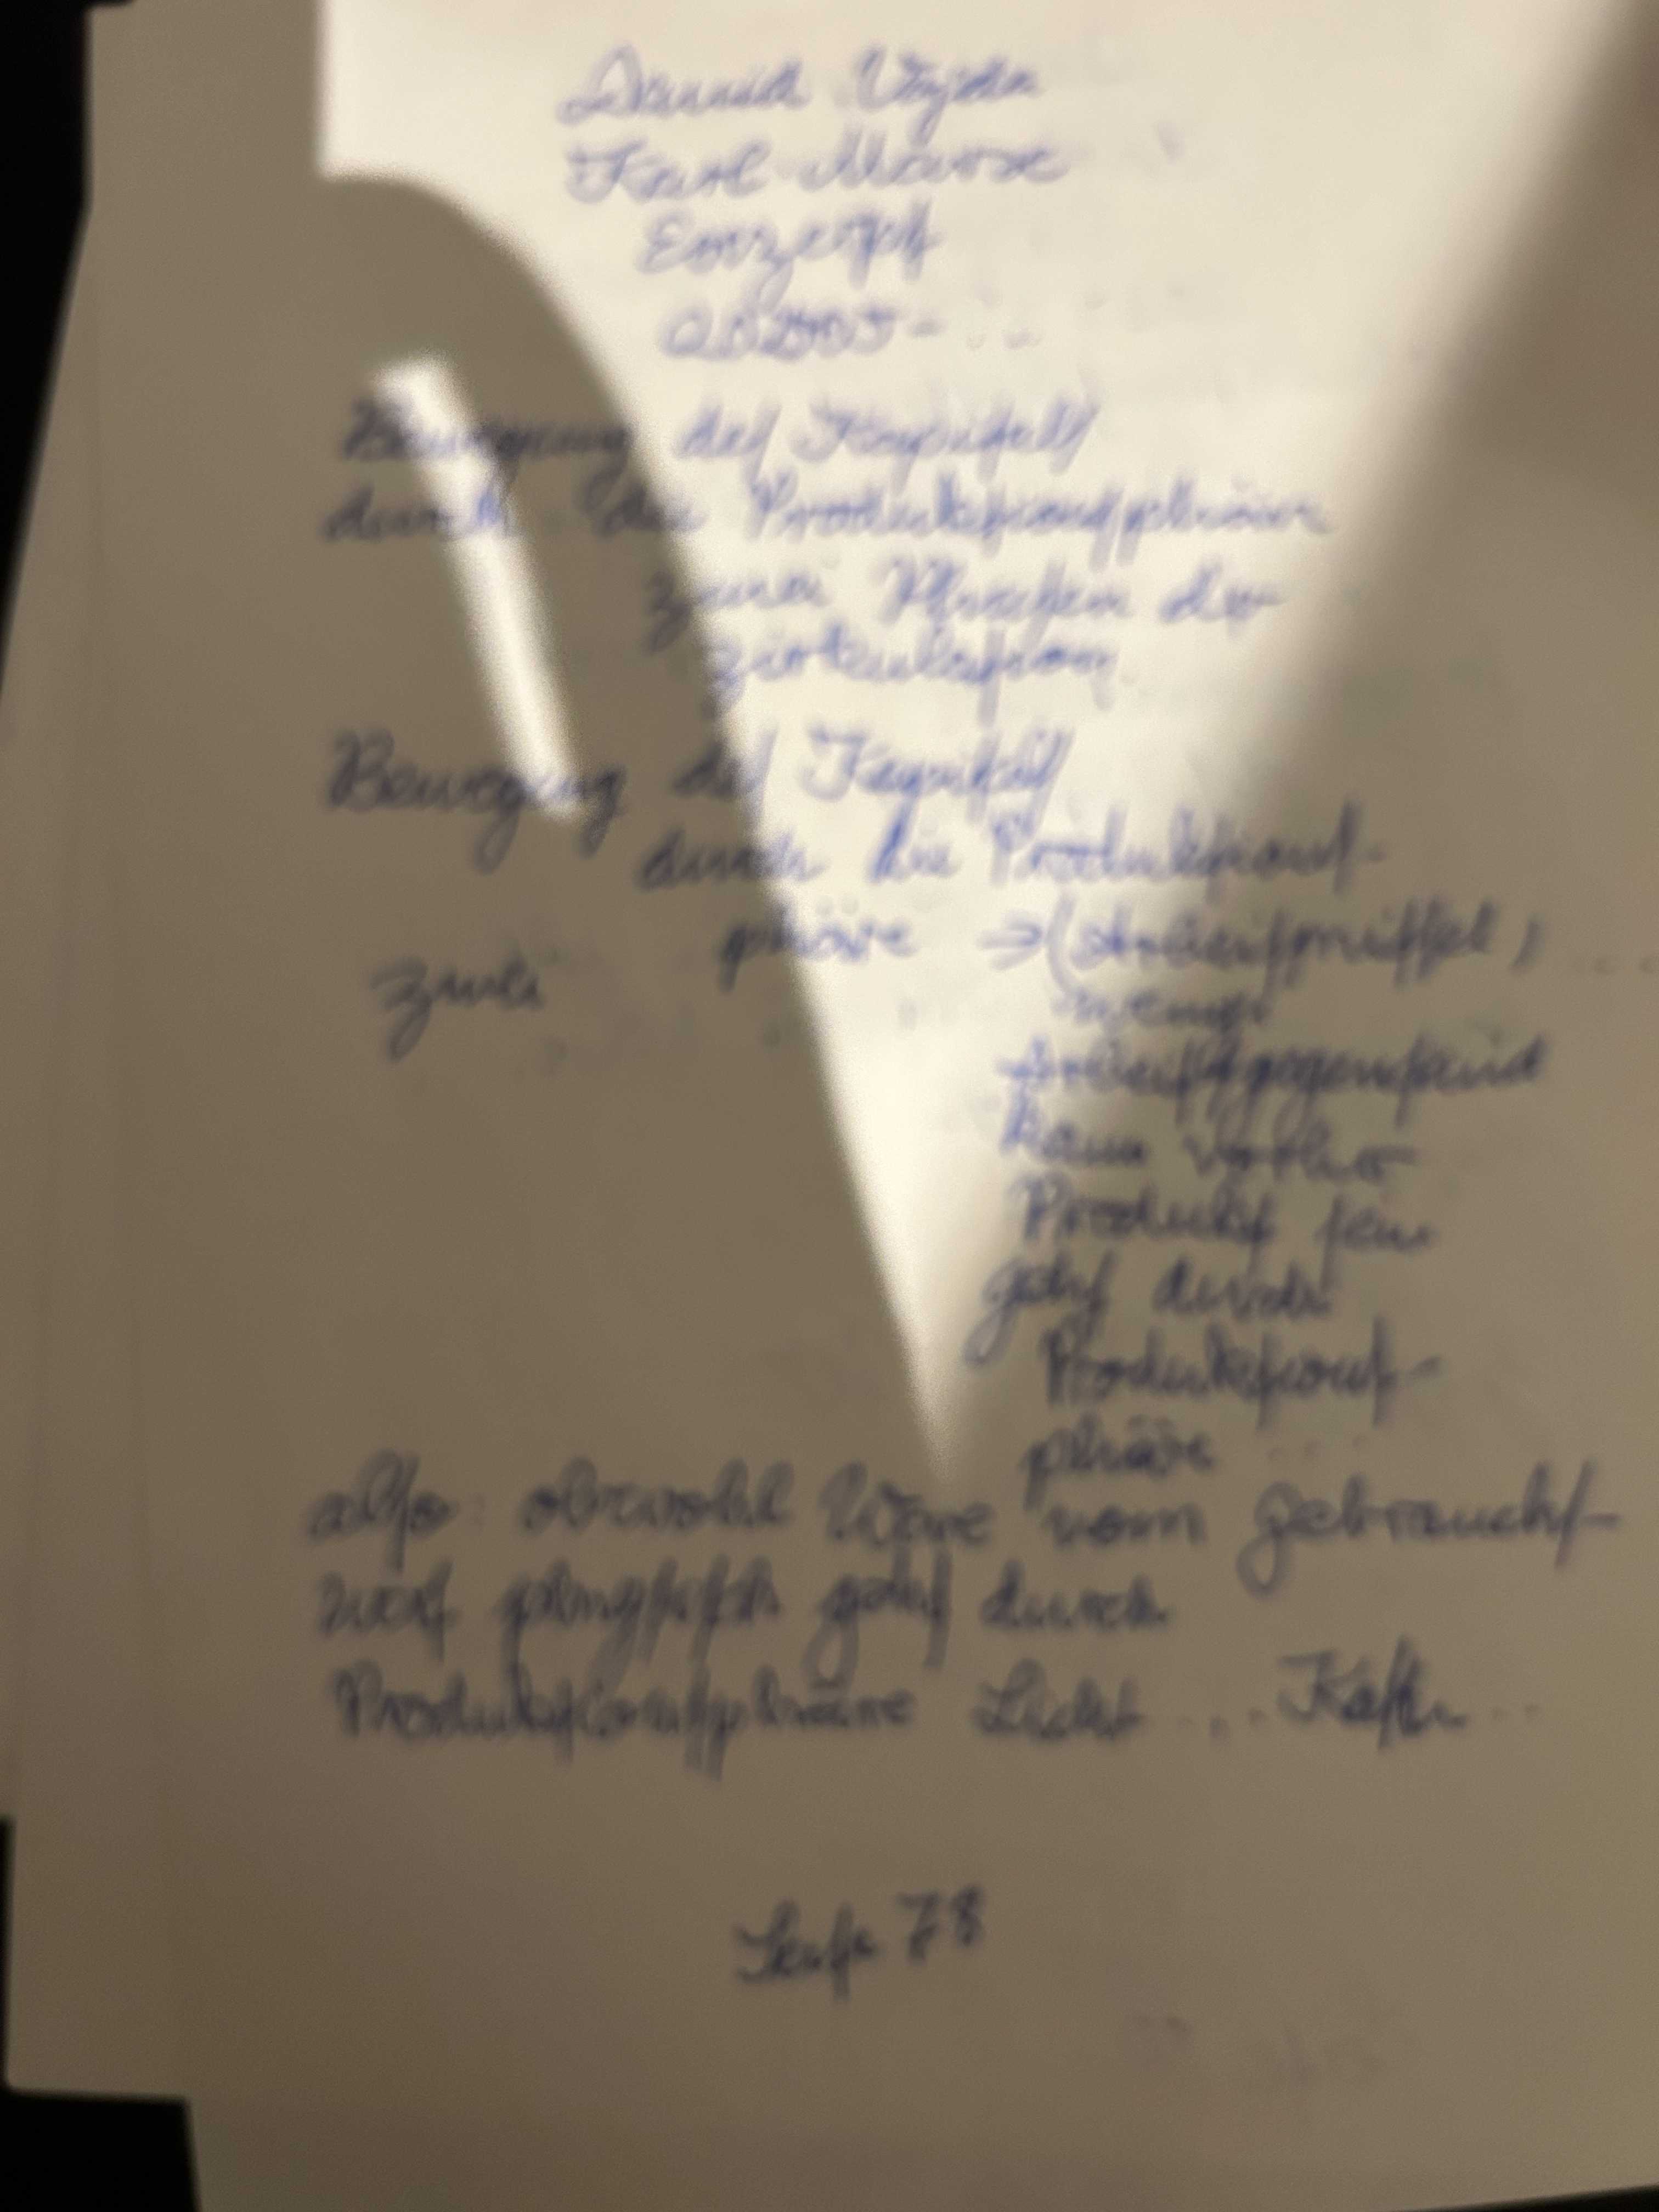 Karl Marx
Exzerpt
Bewegung des Kapitals
durch die Produktionssphäre
zwei Phasen der
Zirkulation
Bewegung des Kapital
durch die Produktions-
zwei sphäre → (Arbeitsmittel, ...
wenge
Arbeitsgegenstand
kann vorher
Produkt sein
geht durch
Produktions-
sphäre ...
also: obwohl Ware vom Gebrauchs-
wert geht durch
Produktionssphäre ... ...
Seite 78